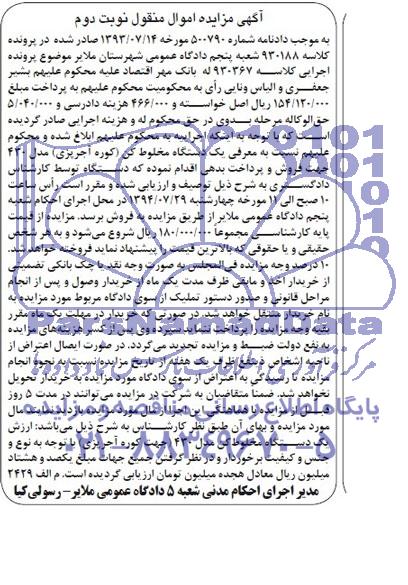 آگهی مزایده اموال منقول نوبت دوم
به موجب دادنامه شماره ۵۰۰۷۹۰ مورخه ۱۳۹۳/۰۷/۱۴ صادر شده در پرونده
کلاسه ۹۳۰۱۸۸ شعبه پنجم دادگاه عمومی شهرستان ملایر موضوع پرونده
اجرایی کلاسه ۹۳۰۳۶۷ له بانک مهر اقتصاد علیه محکوم علیهم بشیر
جعفری و الیاس ونایی رأی به محکومیت محکوم علیهم به پرداخت مبلغ
۱۵۴/۱۲۰/۰۰۰ ریال اصل خواسته و ۴۶۶/۰۰۰ هزینه دادرسی و ۵/۰۴۰/۰۰۰
حق‌الوکاله مرحله بدوی در حق محکوم له و هزینه اجرایی صادر گردیده
است که با توجه به اینکه اجراییه به محکوم علیهم ابلاغ شده و محکوم
علیهم نسبت به معرفی یک دستگاه مخلوط کن (کوره آجرپزی) مدل ۴۳۰
جهت فروش و پرداخت بدهی اقدام نموده که دستگاه توسط کارشناس
دادگستری به شرح ذیل توصیف و ارزیابی شده و مقرر است رأس ساعت
۱۰ صبح الی ۱۱ مورخه چهارشنبه ۱۳۹۴/۰۷/۲۹ در محل اجرای احکام شعبه
پنجم دادگاه عمومی ملایر از طریق مزایده به فروش برسد. مزایده از قیمت
پایه کارشناسی مجموعا ۱۸۰/۰۰۰/۰۰۰ ریال شروع می‌شود و به هر شخص
حقیقی و یا حقوقی که بالاترین قیمت را پیشنهاد نماید فروخته خواهد شد.
۱۰ درصد وجه مزایده فی‌المجلس به صورت وجه نقد یا چک بانکی تضمینی
از خریدار اخذ و مابقی ظرف مدت یک ماه از خریدار وصول و پس از انجام
مراحل قانونی و صدور دستور تملیک از سوی دادگاه مربوط مورد مزایده به
نام خریدار منتقل خواهد شد. در صورتی که خریدار در مهلت یک ماه مقرر
بقیه وجه مزایده را پرداخت ننماید سپرده وی پس از کسر هزینه‌های مزایده
به نفع دولت ضبط و مزایده تجدید می‌گردد. در صورت ایصال اعتراض از
ناحیه اشخاص ذینفع ظرف یک هفته از تاریخ مزایده نسبت به نحوه انجام
مزایده تا رسیدگی به اعتراض از سوی دادگاه مورد مزایده به خریدار تحویل
نخواهد شد. ضمنا متقاضیان به شرکت در مزایده می‌توانند در مدت ۵ روز
قبل از مزایده با هماهنگی این اجرا از مال مورد مزایده بازدید نمایند. مال
مورد مزایده و بهای آن طبق نظر کارشناس به شرح ذیل می‌باشد: ارزش
یک دستگاه مخلوط کن مدل ۴۳۰ جهت کوره آجرپزی) با توجه به نوع و
جنس و کیفیت برخوردار و در نظر گرفتن جمیع جهات مبلغ یکصد و هشتاد
میلیون ریال معادل هجده میلیون تومان ارزیابی گردیده است. م الف ۲۴۲۹
مدیر اجرای احکام مدنی شعبه ۵ دادگاه عمومی ملایر – رسولی کیا